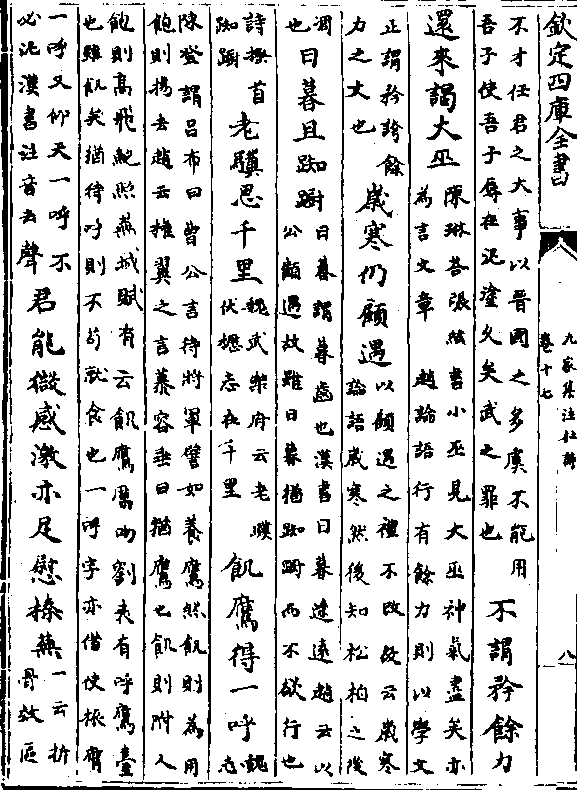 欽定四庫全書
九家集注杜詩
卷十七
八
不才任君之大事以晉國之多虞不能用
吾子使吾子辱在泥塗久矣武之罪也
不謂矜餘力
還來謁大巫
陳琳荅張紘書小巫見大巫神氣盡矣亦
為言文章 趙論語行有餘力則以學文
正謂矜誇餘
力之文也
歲寒仍顧遇
以顧遇之禮不改故云歲寒
論語歲寒然後知松柏之後
凋
也
日暮且踟躕
日暮謂暮齒也漢書日暮途遠趙云以
公顧遇故雖日暮猶踟躕而不欲行也
詩搔首
踟躕
老驥思千里
魏武樂府云老驥
伏櫪志在千里
飢鷹得一呼
魏志
陳登謂呂布曰曹公言待將軍譬如養鷹然飢則為用
飽則揚去趙云推翼之言慕容垂曰猶鷹也飢則附人
飽則高飛鮑照蕪城賦有云飢鷹厲吻劉夷有呼鷹臺
也雖飢矣猶待呼則不苟就食也一呼字亦借使振臂
一呼又仰天一呼不
必泥漢書注音去聲
君能微感激亦足慰榛蕪
一云折
骨效區